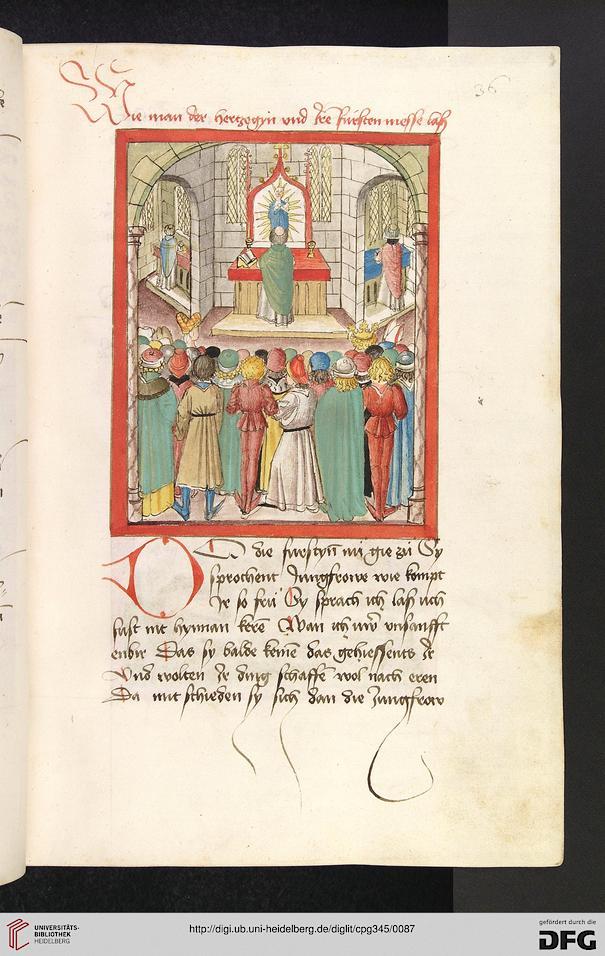 36
Wie man der hertzogin vnd den fürsten messe lasß
Do die fürstyn im gie zü Sy
sprochent Jungfrowe wie kompt
Ir so frü Sy sprach ich lasß uch
sust nit hynnan kere Wan ich üwer unsanfft
enbir Das sy balde keme das gehiessents Ir
Vnd wolten Ir ding schaffē wol nach eren
Da mit schieden sy sich dan die Jungfrow
UNIVERSITÄTS-
BIBLIOTHEK
HEIDELBERG
http://digi.ub.uni-heidelberg.de/diglit/cpg345/0087
gefördert durch die
DFG